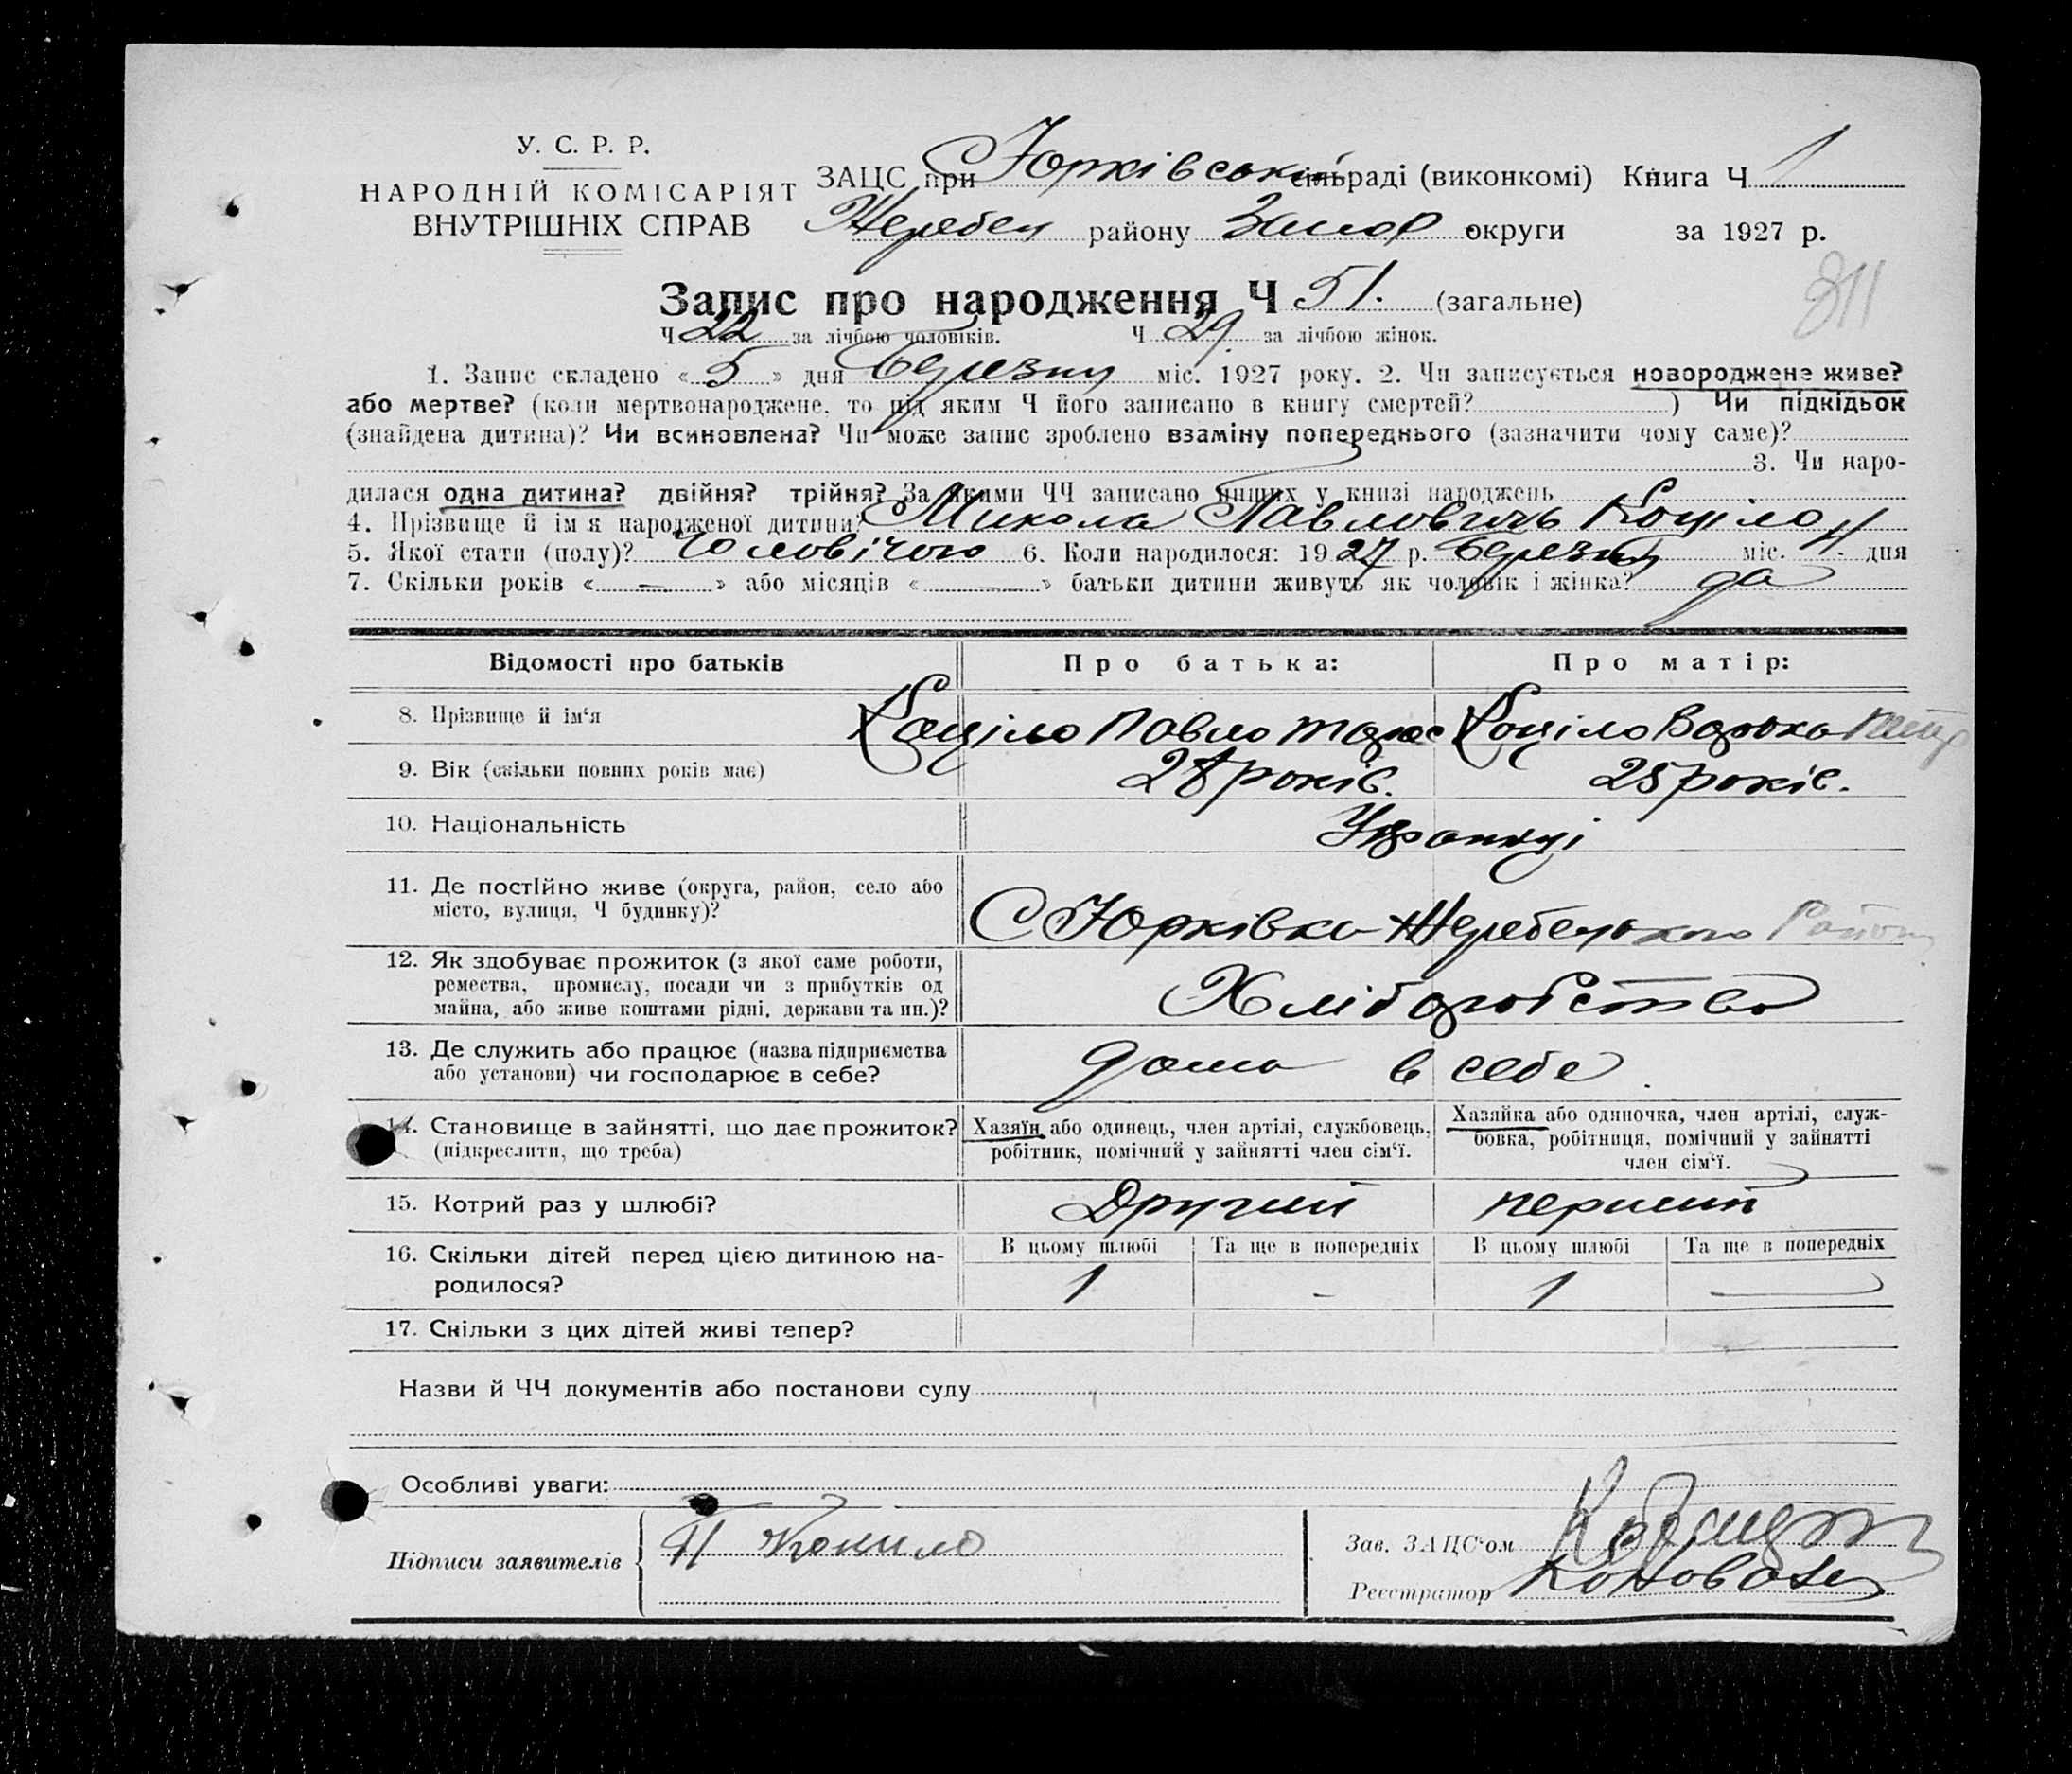 У. С. Р. Р.
НАРОДНІЙ КОМІСАРІЯТ
ВНУТРІШНІХ СПРАВ
ЗАЦС при Юрківській сільраді (виконкомі) Книга Ч 1
Жеребец району Запор округи за 1927 р.
311
Запис про народження Ч 51. (загальне)
Ч 22 за лічбою чоловіків. Ч 29. за лічбою жінок.
1. Запис складено « 5 » дня Березня міс. 1927 року. 2. Чи записується новороджене живе?
або мертве? (коли мертвонароджене, то під яким Ч його записано в книгу смертей? ) Чи підкідьок
(знайдена дитина)? Чи всиновлена? Чи може запис зроблено взаміну попереднього (зазначити чому саме)?
3. Чи наро-
дилася одна дитина? двійня? трійня? За якими ЧЧ записано инших у книзі народжень
4. Прізвище й ім'я народженої дитини? Микола Павлович Коціло
5. Якої стати (полу)? чоловічою 6. Коли народилося: 1927 р. Березня міс. 4. дня
7. Скільки років « — » або місяців « — » батьки дитини живуть як чоловік і жінка? да
Відомості про батьків Про батька: Про матір:
8. Прізвище й ім'я Коціло Павло Тарас Коціло Варька Петр
9. Вік (скільки повних років має) 28 років. 25 років.
10. Національність Українці
11. Де постійно живе (округа, район, село або
місто, вулиця, Ч будинку)?
С Юрківка Жеребецького Району
12. Як здобуває прожиток (з якої саме роботи,
ремества, промислу, посади чи з прибутків од
майна, або живе коштами рідні, держави та ин.)?
Хліборобство
13. Де служить або працює (назва підприємства
або установи) чи господарює в себе?
дома в себе.
14. Становище в зайнятті, що дає прожиток?
(підкреслити, що треба)
Хазяїн або одинець, член артілі, службовець,
робітник, помічний у зайнятті член сім'ї.
Хазяйка або одиночка, член артілі, служ-
бовка, робітниця, помічний у зайнятті
член сім'ї.
15. Котрий раз у шлюбі? Другий перший
16. Скільки дітей перед цією дитиною на-
родилося?
В цьому шлюбі Та ще в попередніх В цьому шлюбі Та ще в попередніх
1 - 1 —
17. Скільки з цих дітей живі тепер?
Назви й ЧЧ документів або постанови суду
Особливі уваги:
Підписи заявителів П Коцило
Зав. ЗАЦС'ом
Реєстратор Коновал